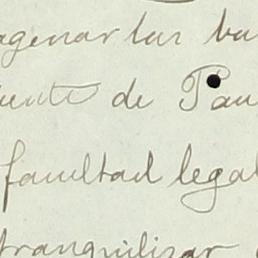 agenar las ba
uente de Pau
facultad legal
tranquilizar